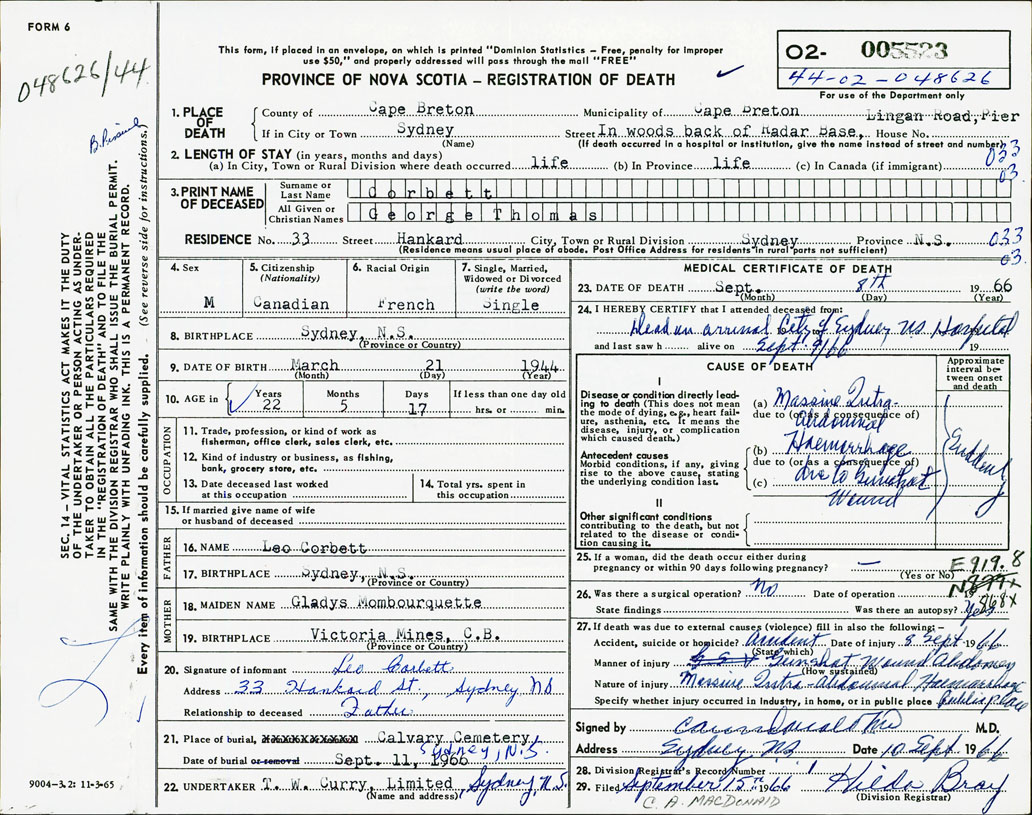 FORM 6
048626/44
This form, if placed in an envelope, on which is printed "Dominion Statistics – Free, penalty for improper
use $50," and properly addressed will pass through the mail "FREE"
PROVINCE OF NOVA SCOTIA – REGISTRATION OF DEATH ✓
O2- 005523
44-02-048626
For use of the Department only
SEC. 14 – VITAL STATISTICS ACT MAKES IT THE DUTY
OF THE UNDERTAKER OR PERSON ACTING AS UNDER-
TAKER TO OBTAIN ALL THE PARTICULARS REQUIRED
IN THE "REGISTRATION OF DEATH" AND TO FILE THE
SAME WITH THE DIVISION REGISTRAR WHO SHALL ISSUE THE BURIAL PERMIT.
WRITE PLAINLY WITH UNFADING INK. THIS IS A PERMANENT RECORD.
Every item of information should be carefully supplied. (See reverse side for instructions.)
1. PLACE OF DEATH
County of Cape Breton Municipality of Cape Breton Lingan Road, Pier
If in City or Town Sydney Street In woods back of Radar Base, House No.
(Name) (If death occurred in a hospital or institution, give the name instead of street and number)
2. LENGTH OF STAY (in years, months and days) 033
(a) In City, Town or Rural Division where death occurred life (b) In Province life (c) In Canada (if immigrant) 03
3. PRINT NAME OF DECEASED
Surname or Last Name Corbett
All Given or Christian Names George Thomas
RESIDENCE No. 33 Street Hankard City, Town or Rural Division Sydney Province N.S. 033
(Residence means usual place of abode. Post Office Address for residents in rural parts not sufficient) 03
4. Sex M
5. Citizenship (Nationality) Canadian
6. Racial Origin French
7. Single, Married, Widowed or Divorced (write the word) Single
8. BIRTHPLACE Sydney, N.S.
(Province or Country)
9. DATE OF BIRTH March 21 1944
(Month) (Day) (Year)
10. AGE in Years 22 Months 5 Days 17 If less than one day old hrs. or min.
OCCUPATION
11. Trade, profession, or kind of work as
fisherman, office clerk, sales clerk, etc.
12. Kind of industry or business, as fishing,
bank, grocery store, etc.
13. Date deceased last worked
at this occupation
14. Total yrs. spent in
this occupation
15. If married give name of wife
or husband of deceased
FATHER
16. NAME Leo Corbett
17. BIRTHPLACE Sydney, N.S.
(Province or Country)
MOTHER
18. MAIDEN NAME Gladys Mombourquette
19. BIRTHPLACE Victoria Mines, C.B.
(Province or Country)
20. Signature of informant Leo Corbett
Address 33 Hankard St., Sydney NS
Relationship to deceased Father
21. Place of burial, XXXXXXXXXX Calvary Cemetery
Sydney, N.S.
Date of burial or removal Sept. 11, 1966
22. UNDERTAKER T. W. Curry, Limited Sydney, N.S.
(Name and address)
9004–3.2: 11-3-65
MEDICAL CERTIFICATE OF DEATH
23. DATE OF DEATH Sept. 8th 1966
(Month) (Day) (Year)
24. I HEREBY CERTIFY that I attended deceased from:
Dead on arrival City of Sydney N.S. Hospital
and last saw h alive on Sept 9/66 19
CAUSE OF DEATH
Approximate interval between onset and death
I
Disease or condition directly leading to death (This does not mean the mode of dying, e.g., heart failure, asthenia, etc. It means the disease, injury, or complication which caused death.)
(a) Massive Intra-
due to (or as a consequence of)
abdominal
Antecedent causes
Morbid conditions, if any, giving rise to the above cause, stating the underlying condition last.
(b) Haemorrhage
due to (or as a consequence of)
(c) due to Gunshot
Wound
Sudden
II
Other significant conditions
contributing to the death, but not related to the disease or condition causing it.
25. If a woman, did the death occur either during
pregnancy or within 90 days following pregnancy? —
(Yes or No)
E919.8
N879x
868x
26. Was there a surgical operation? No Date of operation
State findings Was there an autopsy? Yes
27. If death was due to external causes (violence) fill in also the following:–
Accident, suicide or homicide? Accident Date of injury 8 Sept 1966
(State which)
Manner of injury Gunshot Wound Abdomen
(How sustained)
Nature of injury Massive Intra-Abdominal Haemorrhage
Specify whether injury occurred in industry, in home, or in public place Public place
Signed by M.D.
Address Sydney NS Date 10 Sept 1966
28. Division Registrar's Record Number 1
29. Filed September 15th 1966 Hilda Bray
(Division Registrar)
C. A. MACDONALD